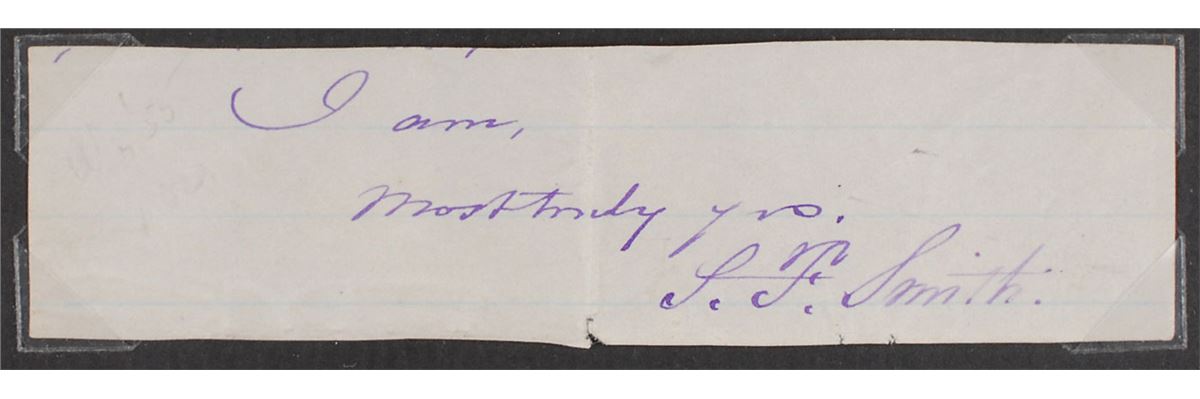 I am,
Most truly yrs.
S. F. Smith.